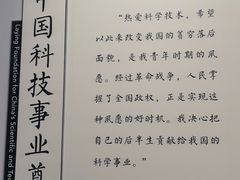 中国科技事业奠
Laying Foundation for China's Scientific and Tec
“热爱科学技术，希望
以此来改变我国的贫穷落后
面貌，是我青年时期的夙
愿。经过革命战争，人民掌
握了全国政权，正是实现这
种夙愿的好时机。我决心把
自己的后半生贡献给我国的
科学事业。”